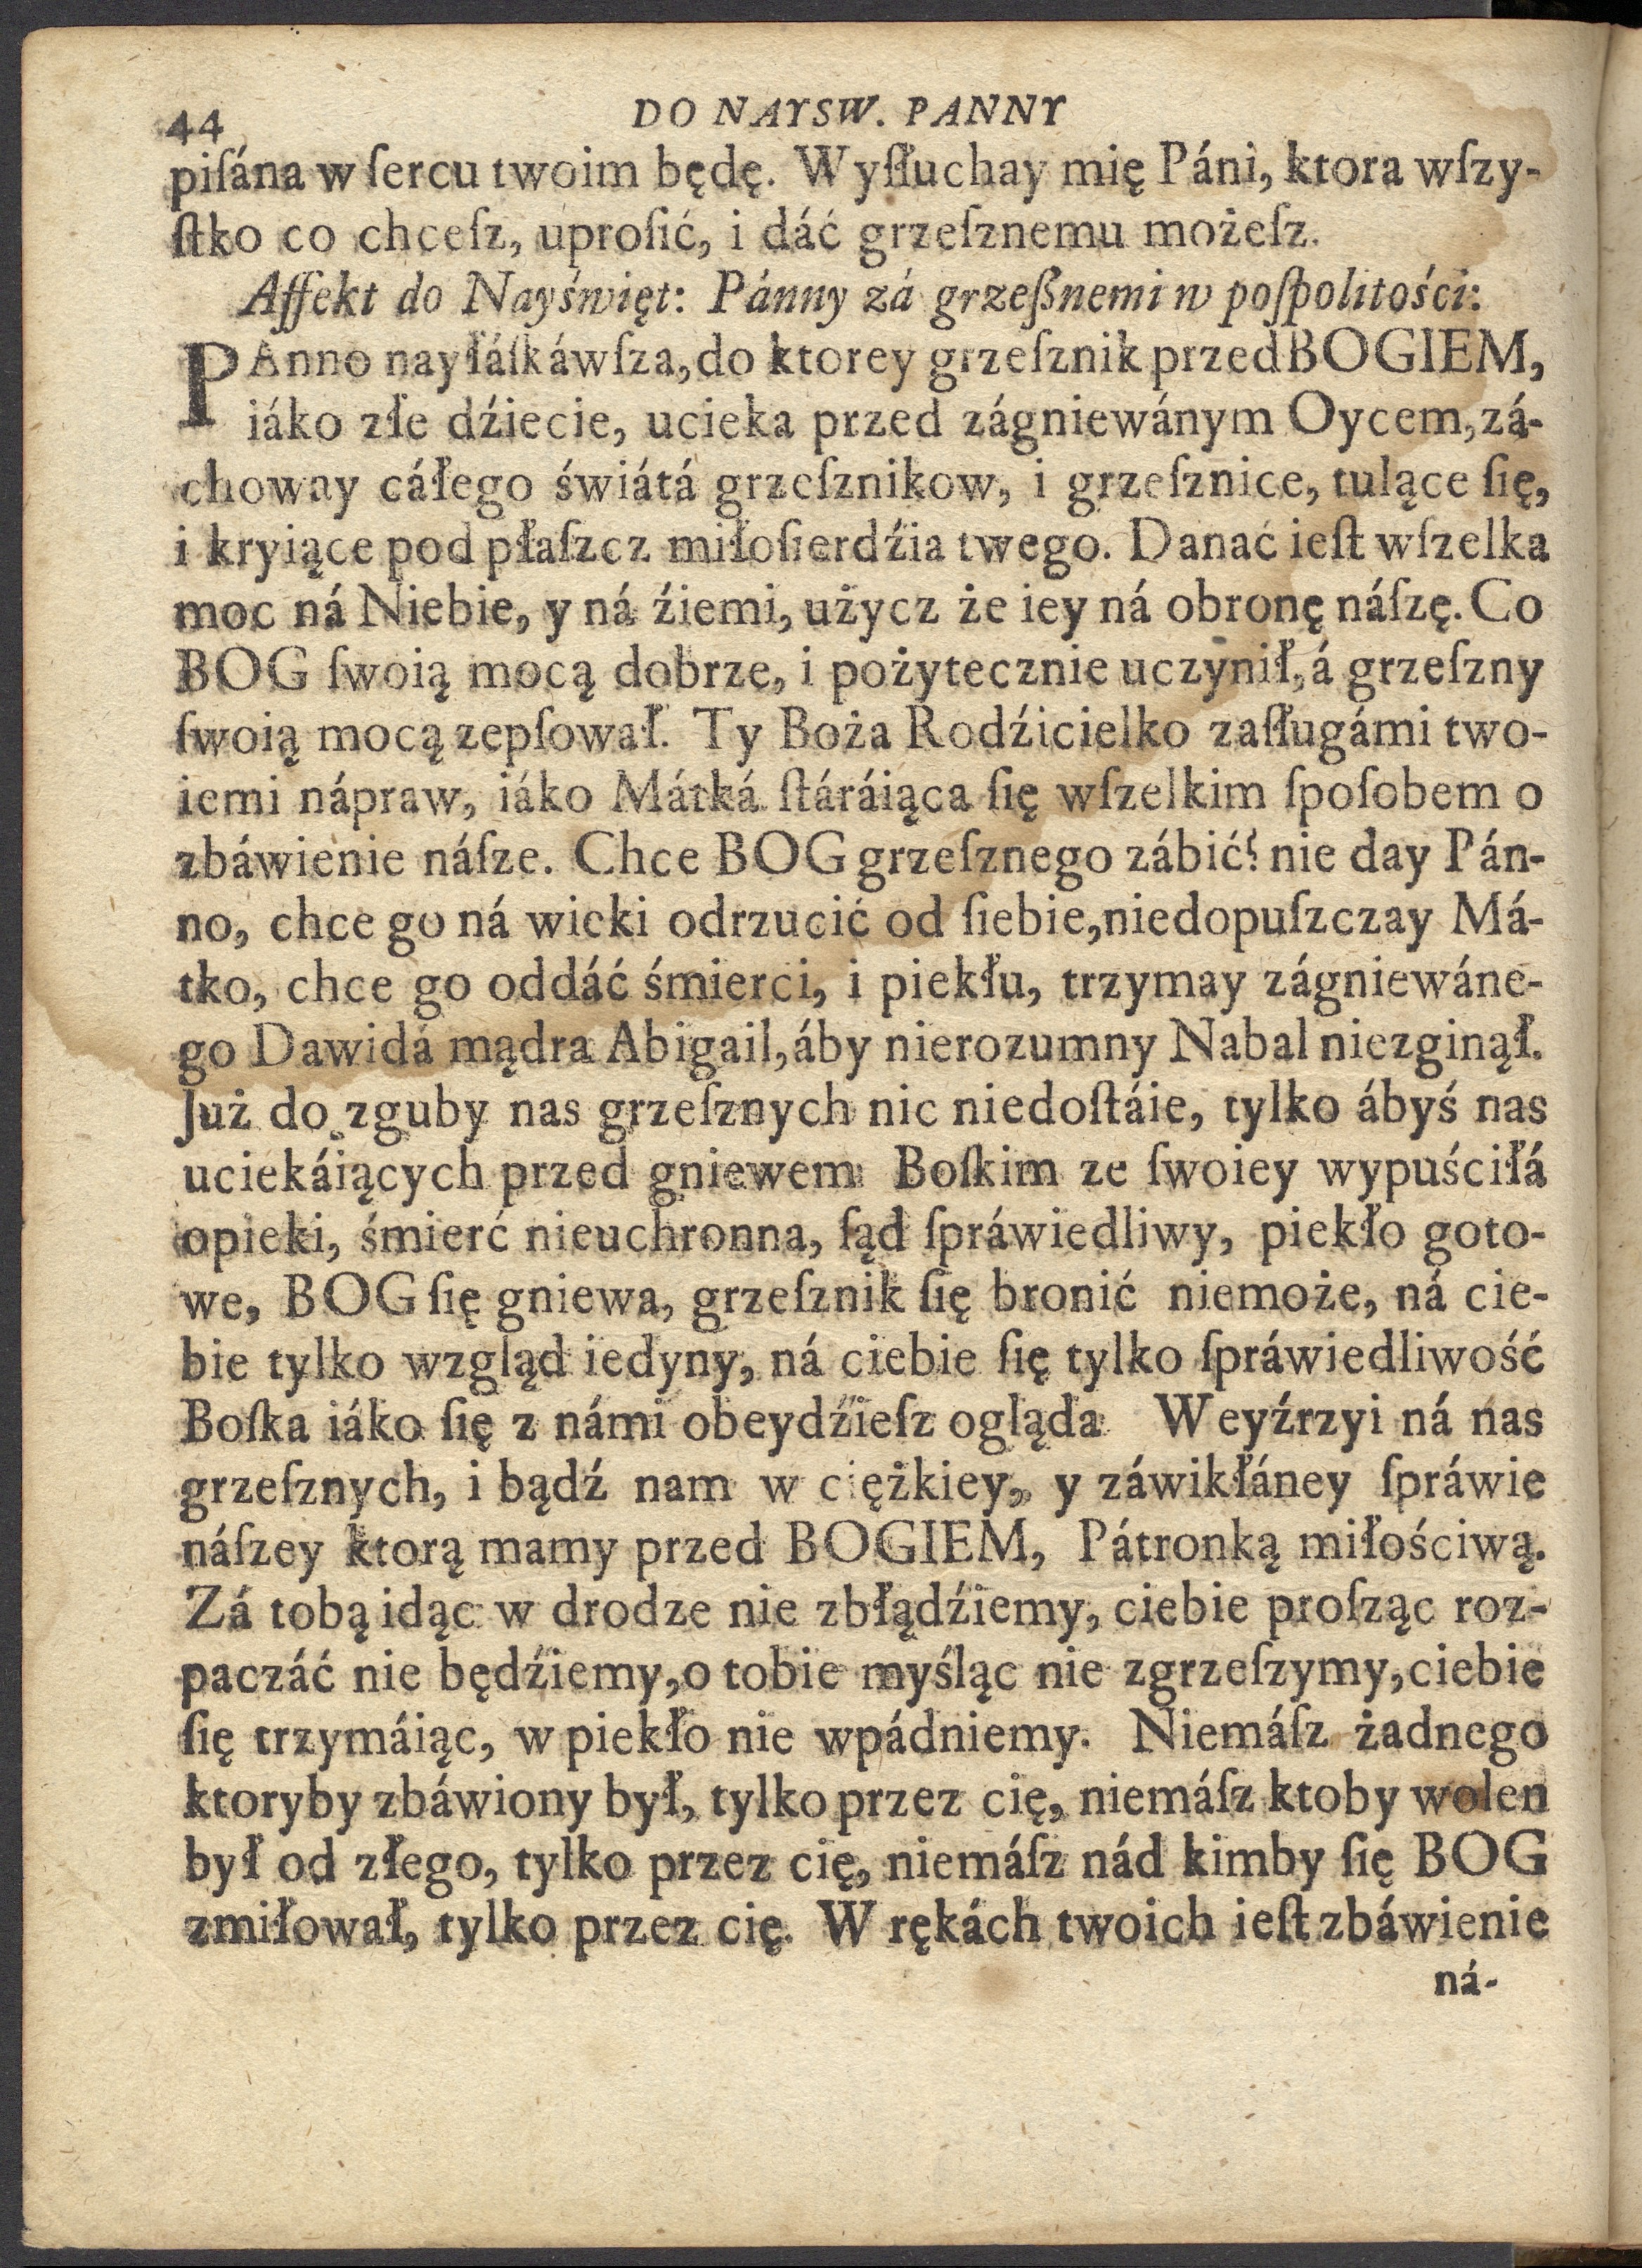 44
DO NAYSW. PANNY
piſána w ſercu twoim będę. Wyſłuchay mię Páni, ktora wſzy-
ſtko co chceſz, uproſić, i dáć grzeſznemu możeſz.
Affekt do Nayświęt: Pánny zá grzeßnemi w poſpolitości:
PAnno nayłáſkáwſza, do ktorey grzeſznik przed BOGIEM,
iáko złe dźiecie, ucieka przed zágniewánym Oycem, zá-
choway cáłego świátá grzeſznikow, i grzeſznice, tulące ſię,
i kryiące pod płaſzcz miłoſierdźia twego. Danać ieſt wſzelka
moc ná Niebie, y ná źiemi, użycz że iey ná obronę náſzę. Co
BOG ſwoią mocą dobrze, i pożytecznie uczynił, á grzeſzny
ſwoią mocą zepſował. Ty Boża Rodźicielko zaſługámi two-
iemi nápraw, iáko Mátká ſtáráiąca ſię wſzelkim ſpoſobem o
zbáwienie náſze. Chce BOG grzeſznego zábić? nie day Pán-
no, chce go ná wieki odrzucić od ſiebie, niedopuſzczay Má-
tko, chce go oddáć śmierci, i piekłu, trzymay zágniewáne-
go Dawidá mądra Abigail, áby nierozumny Nabal niezginął.
Już do zguby nas grzeſznych nic niedoſtáie, tylko ábyś nas
uciekáiących przed gniewem Boſkim ze ſwoiey wypuściłá
opieki, śmierć nieuchronna, ſąd ſpráwiedliwy, piekło goto-
we, BOG ſię gniewa, grzeſznik ſię bronić niemoże, ná cie-
bie tylko wzgląd iedyny, ná ciebie ſię tylko ſpráwiedliwość
Boſka iáko ſię z námi obeydźieſz ogląda Weyźrzyi ná nas
grzeſznych, i bądź nam w ciężkiey, y záwikłáney ſpráwie
náſzey ktorą mamy przed BOGIEM, Pátronką miłościwą.
Zá tobą idąc w drodze nie zbłądźiemy, ciebie proſząc roz-
paczáć nie będźiemy, o tobie myśląc nie zgrzeſzymy, ciebie
ſię trzymáiąc, w piekło nie wpádniemy. Niemáſz żadnego
ktoryby zbáwiony był, tylko przez cię, niemáſz ktoby wolen
był od złego, tylko przez cię, niemáſz nád kimby ſię BOG
zmiłował, tylko przez cię. W rękách twoich ieſt zbáwienie
ná-